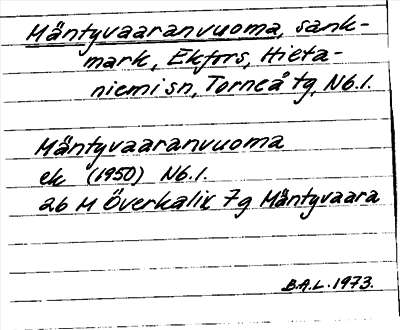 Mäntyvaaranvuoma, sank-
mark, Ekfors, Hieta-
niemi sn, Torneå tg, Nb.l.
Mäntyvaaranvuoma
ek (1950) Nb.l.
26 M Överkalix 7g Mäntyvaara
B.A.L. 1973.